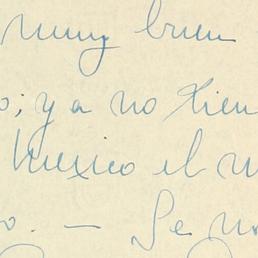 muy buen
o; ya no tien
Mexico el m
o. — Se no